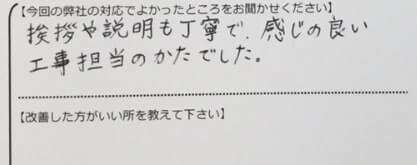 【今回の弊社の対応でよかったところをお聞かせください】
挨拶や説明も丁寧で、感じの良い
工事担当のかたでした。
【改善した方がいい所を教えて下さい】